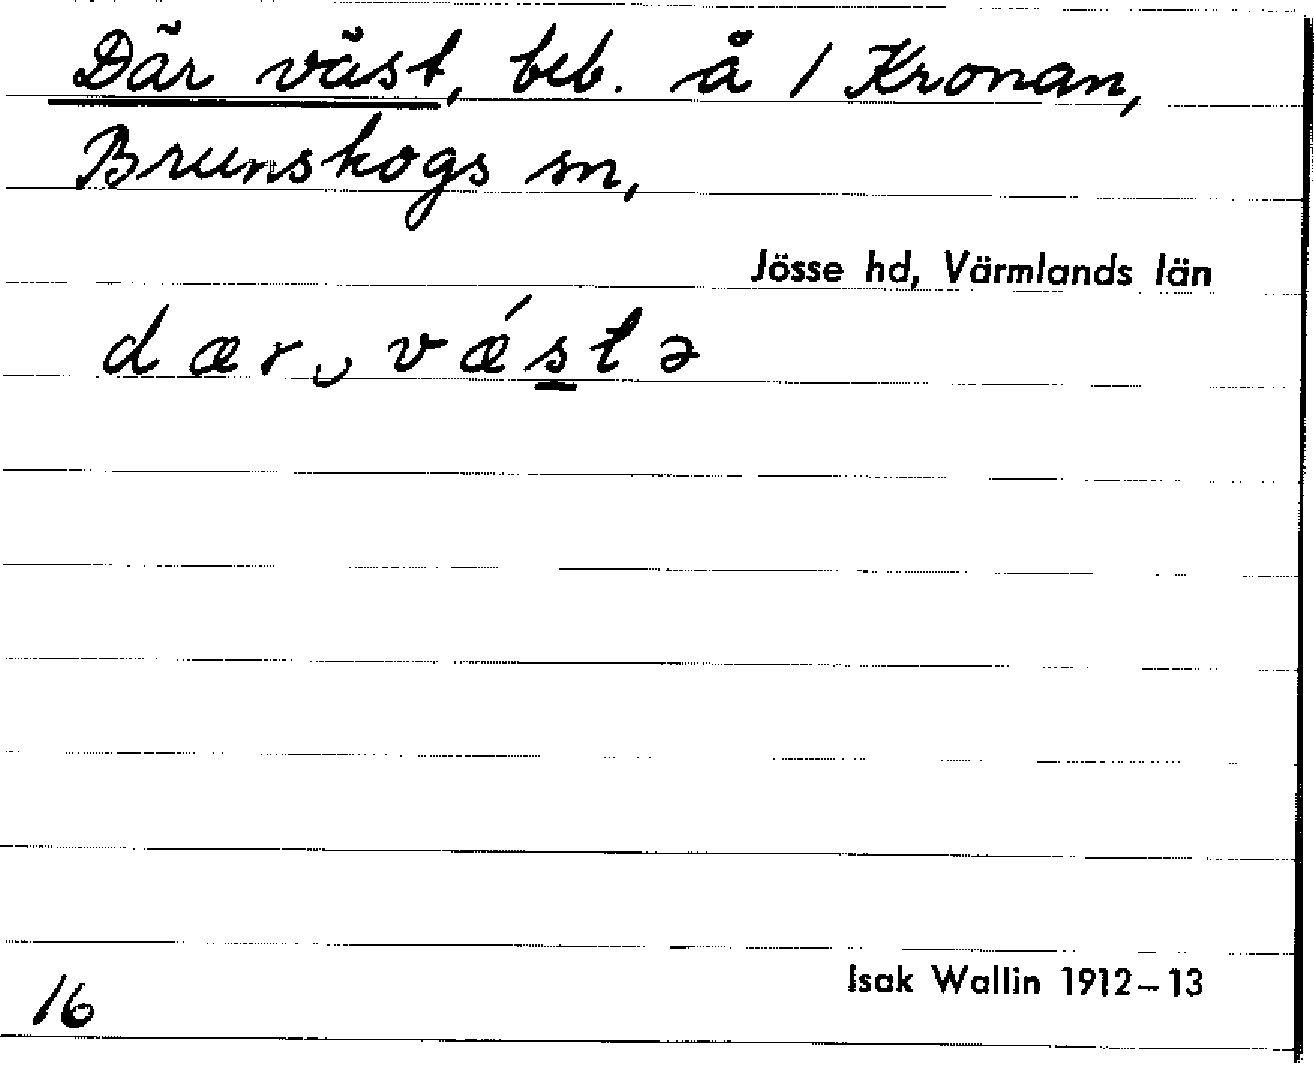 Där väst, beb. å 1 Kronan,
Brunskogs sn,
Jösse hd, Värmlands län
dær‿vǽstə
16
Isak Wallin 1912–13